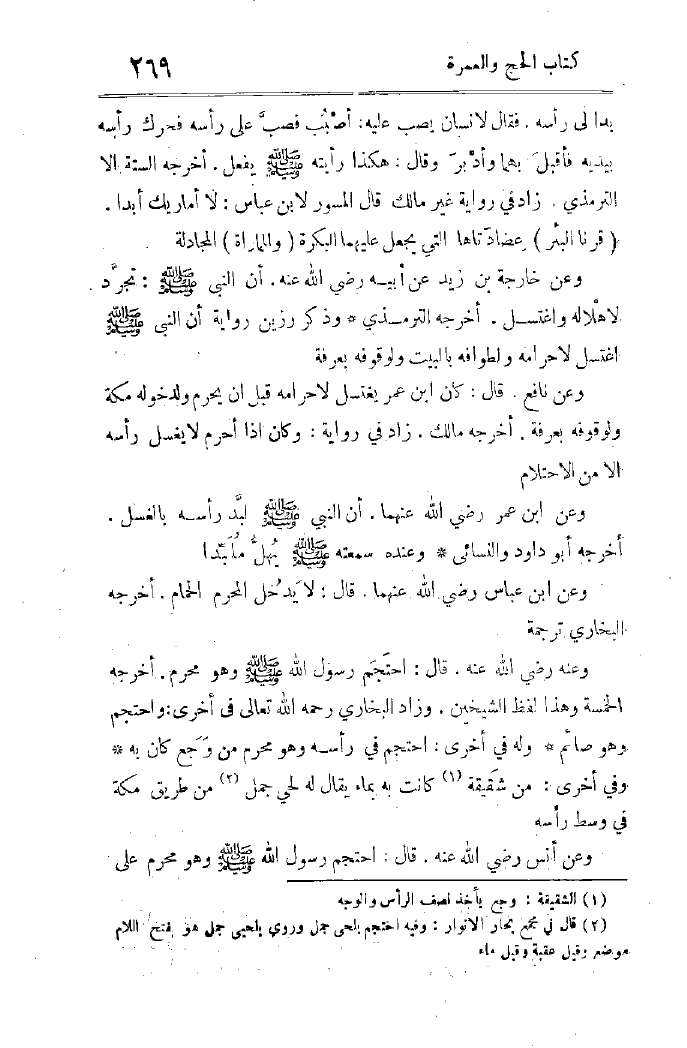 كتاب الحج والعمرة ٢٦٩
بدا لي رأسه . فقال لانسان يصب عليه: أصبُب فصبَّ على رأسه فحرك رأسه
بيديه فأقبلَ بهما وأدْبرَ وقال : هكذا رأيته ﷺ يفعل . أخرجه الستة الا
الترمذي . زاد في رواية غير مالك قال المسور لابن عباس : لا أماريك أبدا .
( قرنا البئر ) عضادتاها التي يجعل عليهما البكرة ( والماراة ) المجادلة
وعن خارجة بن زيد عن أبيه رضي الله عنه . أن النبي ﷺ : تجرَّد
لاهلاله واغتسل . أخرجه الترمذي * وذكر رزين رواية أن النبي ﷺ
اغتسل لاحرامه ولطوافه بالبيت ولوقوفه بعرفة
وعن نافع . قال : كان ابن عمر يغتسل لاحرامه قبل ان يحرم ولدخوله مكة
ولوقوفه بعرفة . أخرجه مالك . زاد في رواية : وكان اذا أحرم لا يغسل رأسه
الا من الاحتلام
وعن ابن عمر رضي الله عنهما . أن النبي ﷺ لبَّد رأسه بالغسل .
أخرجه أبو داود والنسائى * وعنده سمعته ﷺ يُهلُّ مُلَبِّدا
وعن ابن عباس رضي الله عنهما . قال : لا يَدخُل المحرم الحمام . أخرجه
البخاري ترجمة
وعنه رضي الله عنه . قال : احتَجَم رسول الله ﷺ وهو محرم . أخرجه
الخمسة وهذا لفظ الشيخين . وزاد البخاري رحمه الله تعالى فى أخرى: واحتجم
وهو صائم * وله في أخرى : احتجم في رأسه وهو محرم من وَجَع كان به *
وفي أخرى : من شَقيقة (١) كانت به بماء يقال له لحي جمل (٢) من طريق مكة
في وسط رأسه
وعن أنس رضي الله عنه . قال : احتجم رسول الله ﷺ وهو محرم على
(١) الشقيقة : وجع يأخذ نصف الرأس والوجه
(٢) قال في مجمع بحار الانوار : وفيه احتجم بلحى جمل وروي بلحيى جمل هو بفتح اللام
موضع وقيل عقبة وقيل ماء